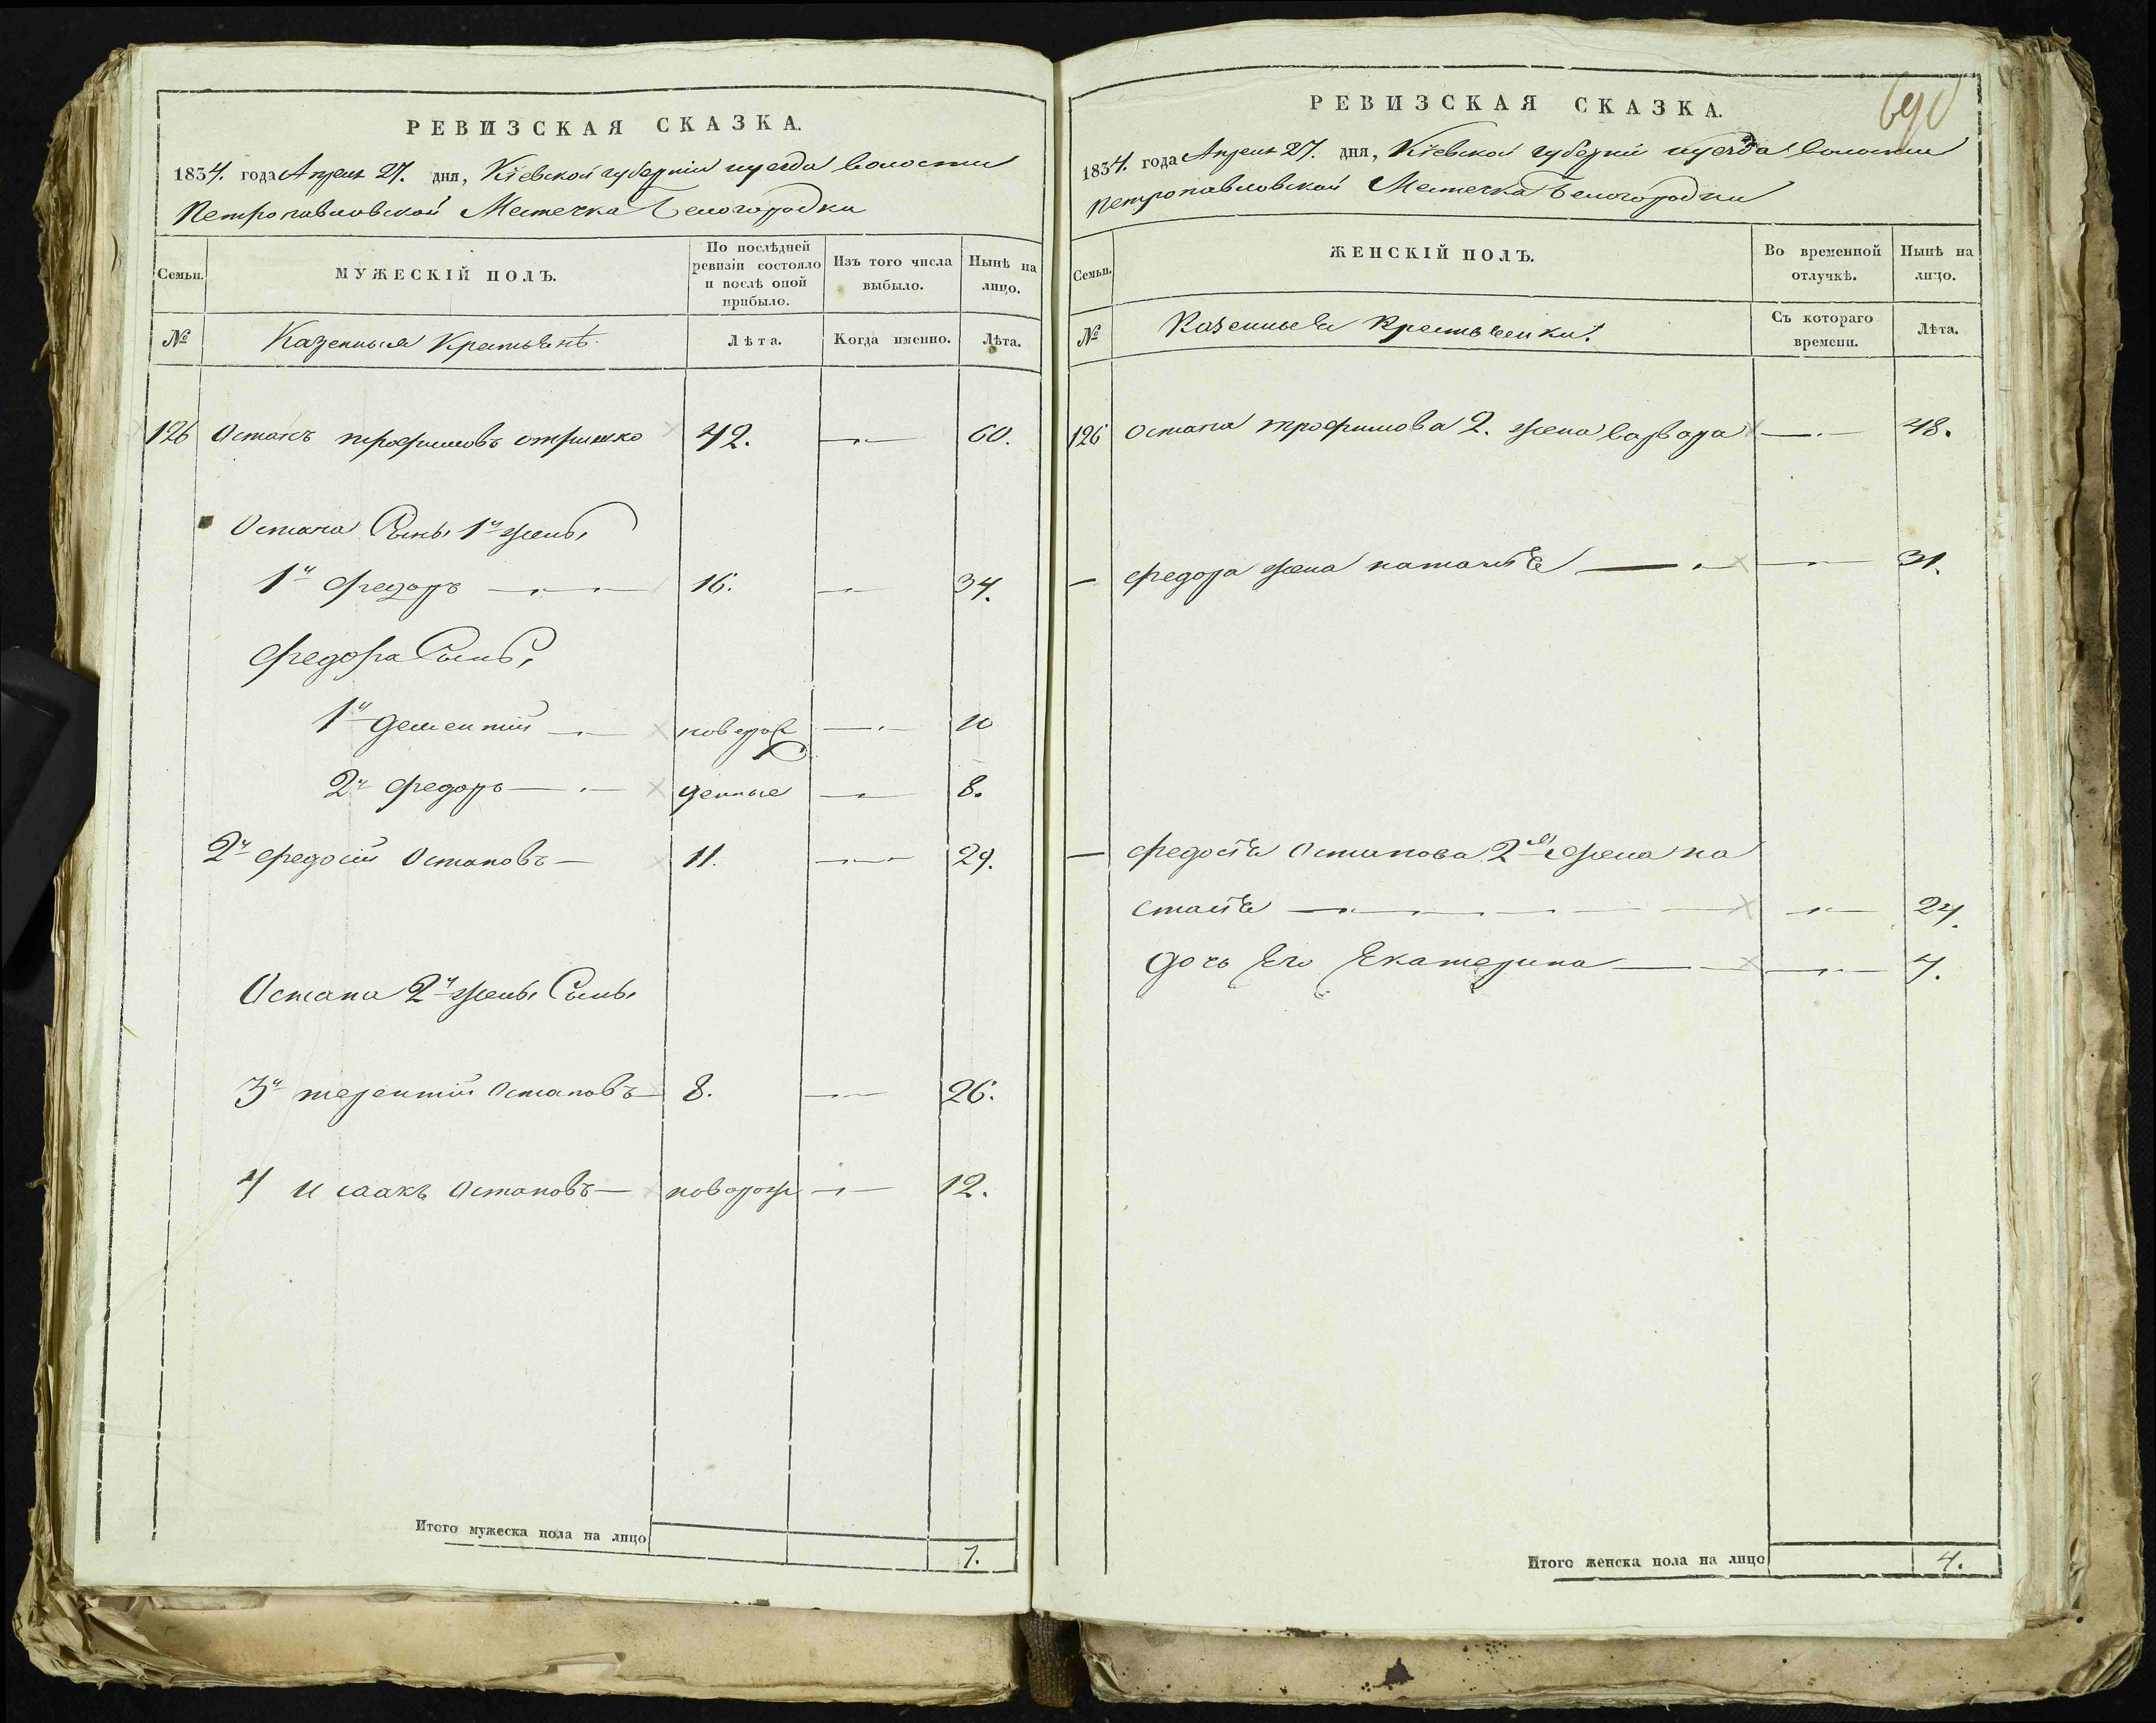 РЕВИЗСКАЯ СКАЗКА.
1834. года Апреля 27. дня, Кіевской губерніи и уезда волости
Петропавловской Местечка Белогородки
Семьи. МУЖЕСКІЙ ПОЛЪ. По послѣдней ревизіи состояло и послѣ оной прибыло. Изъ того числа выбыло. Нынѣ на лицо.
№ Казенныя Крестьянѣ. Лѣта. Когда именно. Лѣта.
126 Остапъ трофимовъ 42. 60.
Остапа Сыны 1й жены
1й Федоръ 16. 34.
Федора Сыны
1й дементий новорож 10
2й федоръ денные 8.
2й федосий Остаповъ 11. 29.
Остапа 2й жены Сыны
3й терентий Остаповъ 8. 26.
4 Исаакъ Остаповъ новорож 12.
Итого мужеска пола на лицо 7.
РЕВИЗСКАЯ СКАЗКА.
1834. года Апреля 27. дня, Кіевской губерніи и уезда волости
Петропавловской Местечка Белогородки
Семьи. ЖЕНСКІЙ ПОЛЪ. Во временной отлучкѣ. Нынѣ на лицо.
№ Казенные Крестьянки. Съ котораго времени. Лѣта.
126 Остапа трофимова 2. жена варвара 48.
федора жена наталія 31.
федосія Остапова 2я жена на
стасія 24.
дочь Его Екатерина 7.
Итого женска пола на лицо 4.